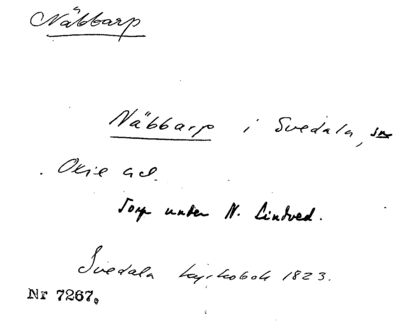 Näbbarp
Näbbarp i Svedala, sn
Oxie hd.
Torp under N. Lindved.
Svedala kyrkobok 1823.
Nr 7267.